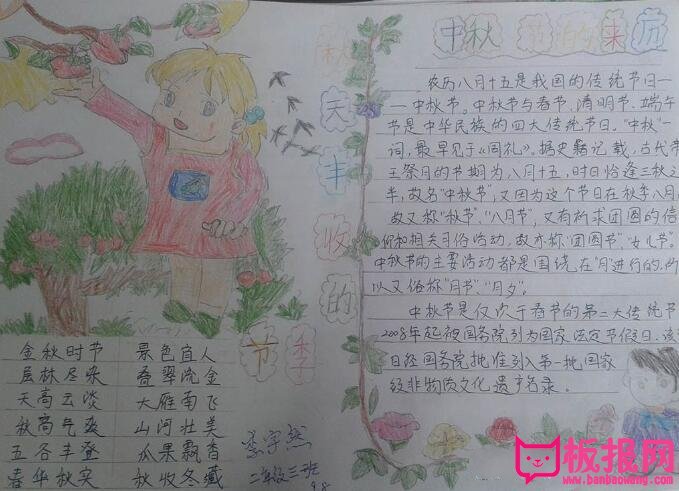 秋天丰收的季节
金秋时节 景色宜人
层林尽染 叠翠流金
天高云淡 大雁南飞
秋高气爽 山河壮美
五谷丰登 瓜果飘香
春华秋实 秋收冬藏
李宇然
二年级三班
9.8
中秋节的来历
农历八月十五是我国的传统节日—
—中秋节。中秋节与春节、清明节、端午
节是中华民族的四大传统节日。"中秋"一
词,最早见于《周礼》。据史籍记载,古代帝
王祭月的节期为八月十五,时日恰逢三秋之
半,故名"中秋节",又因为这个节日在秋季八月,
故又称"秋节"、"八月节",又有祈求团圆的信
仰和相关习俗活动,故亦称"团圆节"、"女儿节"。
中秋节的主要活动都是围绕在"月"进行的,所
以又俗称"月节""月夕"。
中秋节是仅次于春节的第二大传统节
2008年起被国务院列为国家法定节假日。该
日经国务院批准列入第一批国家
级非物质文化遗产名录。
板报网
www.banbaowang.com